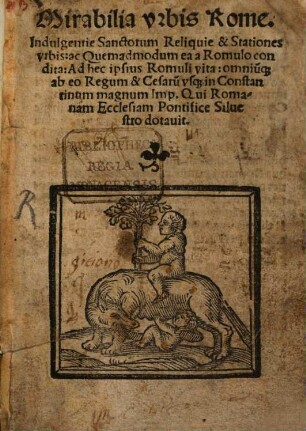 Mirabilia vrbis Rome.
Indulgentie Sanctorum Reliquie & Stationes
vrbis: ac Quemadmodum ea a Romulo con
dita: Ad hec ipsius Romuli vita: omniūq;
ab eo Regum & Cesarū vsq; in Constan
tinum magnum Imp. Qui Roma-
nam Ecclesiam Pontifice Silue
stro dotauit.
BIBLIOTHECA
REGIA
MONACENSIS
R